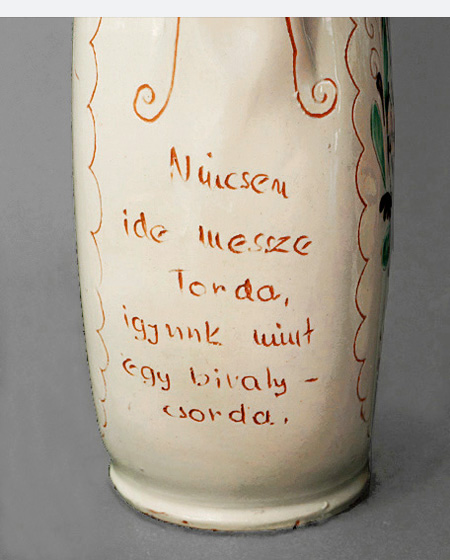 Nincsen
ide messze
Torda,
igyunk mint
egy bivaly -
csorda.